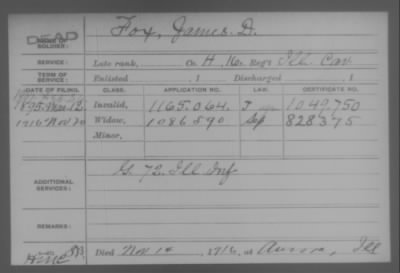 DEAD
NAME OF SOLDIER: Fox, James. D.
SERVICE: Late rank, Co. H, 16. Reg't Ill Cav.
TERM OF SERVICE: Enlisted , 1 Discharged , 1
DATE OF FILING. CLASS. APPLICATION NO. LAW. CERTIFICATE NO.
1895 Mar 12 Invalid, 1165.064. 1049.750
1916 Nov 20 Widow, 1086890 828375
Minor,
ADDITIONAL SERVICES: G. 72. Ill Inf
REMARKS:
Died Nov 14, 1916, at Aurora, Ill